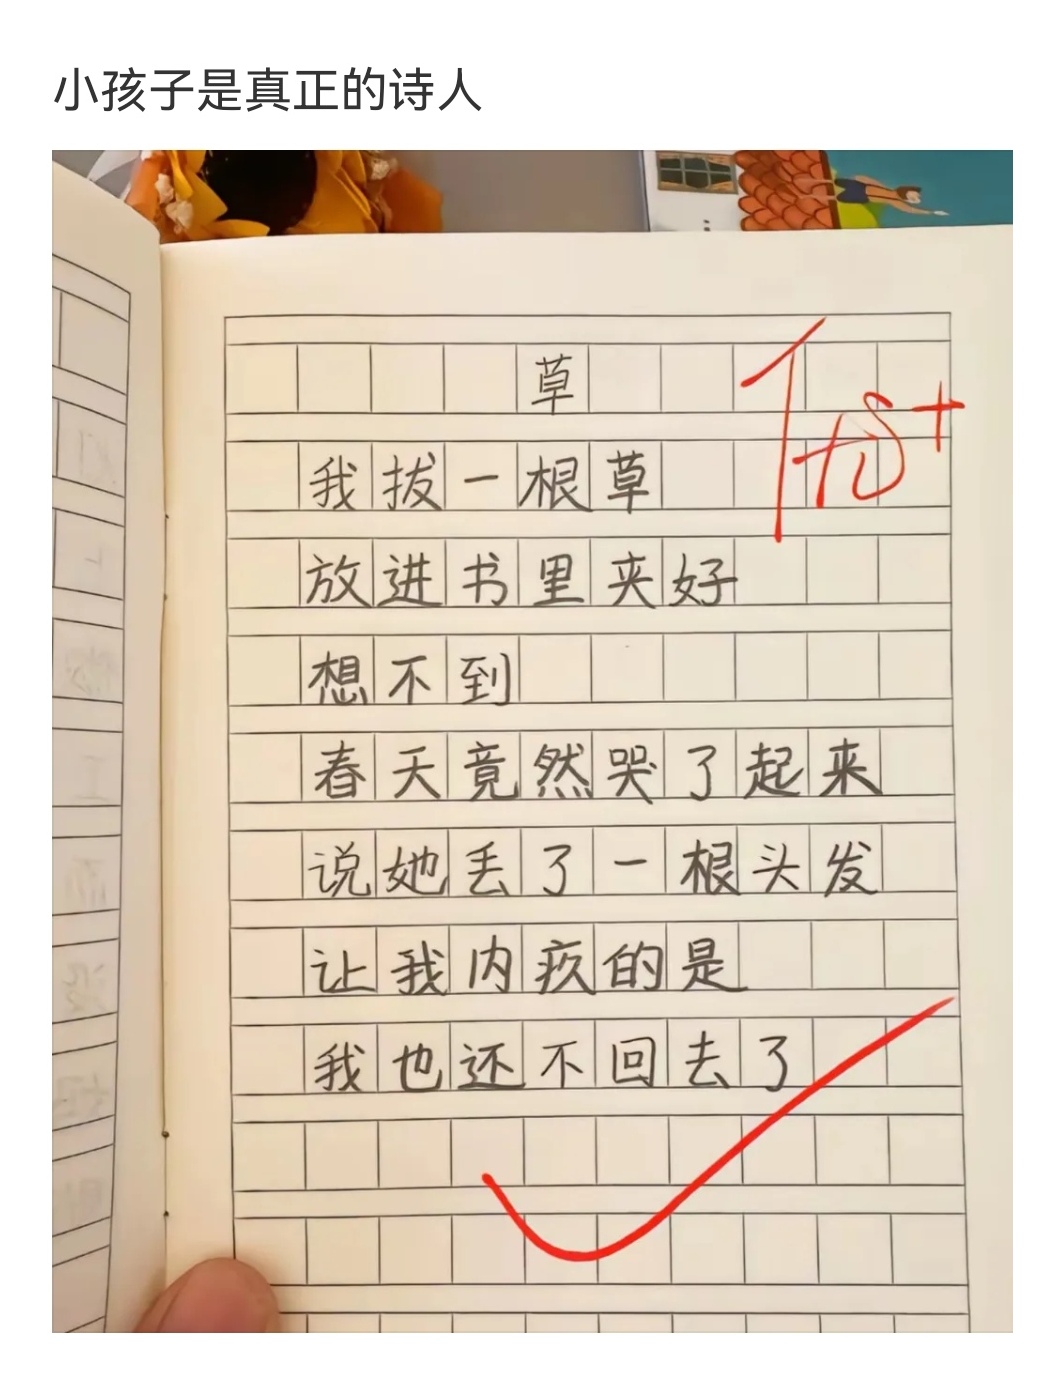 小孩子是真正的诗人
草
优+
我拔一根草
放进书里夹好
想不到
春天竟然哭了起来
说她丢了一根头发
让我内疚的是
我也还不回去了